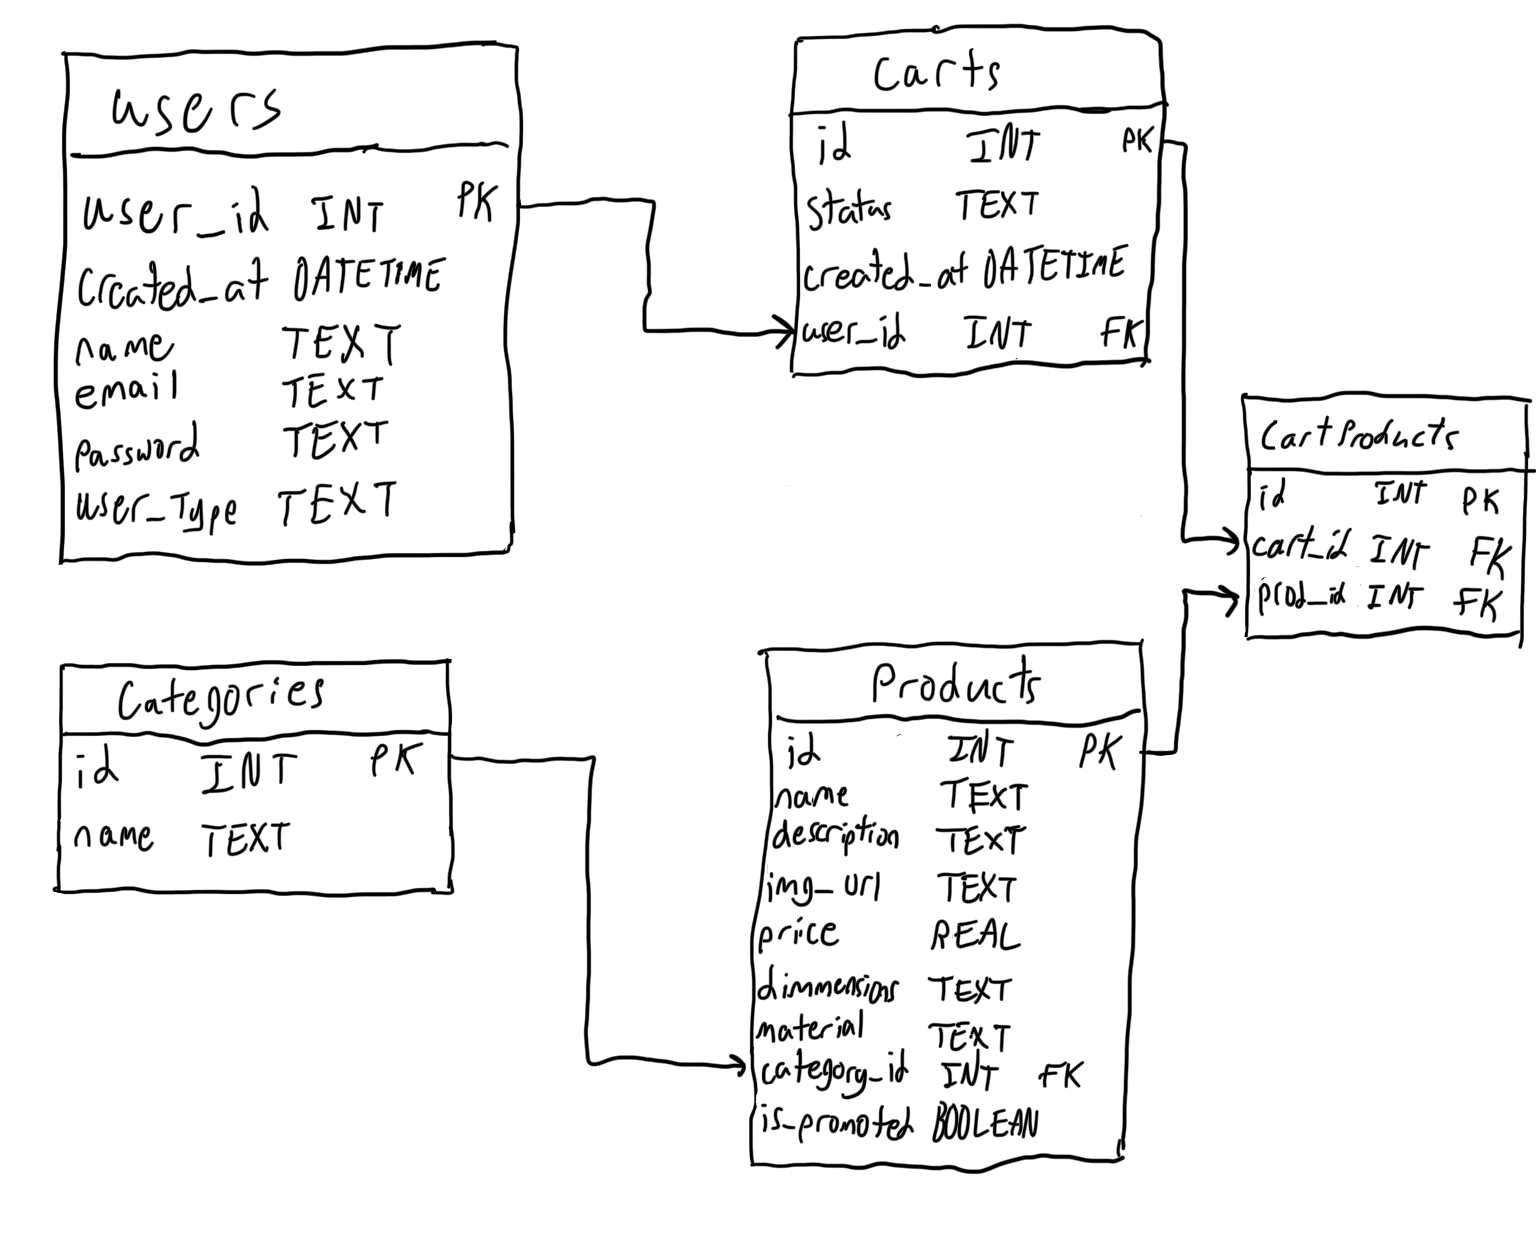 users
user_id INT PK
created_at DATETIME
name TEXT
email TEXT
password TEXT
user_Type TEXT
Carts
id INT PK
status TEXT
created_at DATETIME
user_id INT FK
CartProducts
id INT PK
cart_id INT FK
prod_id INT FK
Categories
id INT PK
name TEXT
Products
id INT PK
name TEXT
description TEXT
img_url TEXT
price REAL
dimmensions TEXT
material TEXT
category_id INT FK
is_promoted BOOLEAN